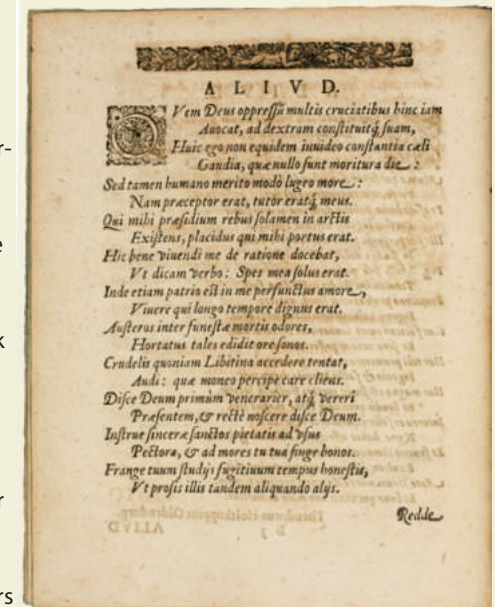 ALIVD.
QVem Deus oppressũ multis cruciatibus hinc iam
Auocat, ad dextram constituitq́; suam,
Huic ego non equidem inuideo constantia cæli
Gaudia, quæ nullo sunt moritura die:
Sed tamen humano merito modò lugeo more:
Nam præceptor erat, tutor eratq́; meus.
Qui mihi præsidium rebus solamen in arctis
Existens, placidus qui mihi portus erat.
Hic bene viuendi me de ratione docebat,
Vt dicam verbo: Spes mea solus erat.
Inde etiam patrio est in me perfunctus amore,
Viuere qui longo tempore dignus erat.
Austeros inter funestæ mortis odores,
Hortatus tales edidit ore sonos.
Crudelis quoniam Libitina accedere tentat,
Audi: quæ moneo percipe care cliens.
Disce Deum primùm venerarier, atq́; vereri
Præsentem, & rectè noscere disce Deum.
Instrue sinceræ sanctos pietatis ad vsus
Pectora, & ad mores tu tua finge bonos.
Frange tuum studijs fugitiuum tempus honestis,
Vt prosis illis tandem aliquando alijs.
Redde